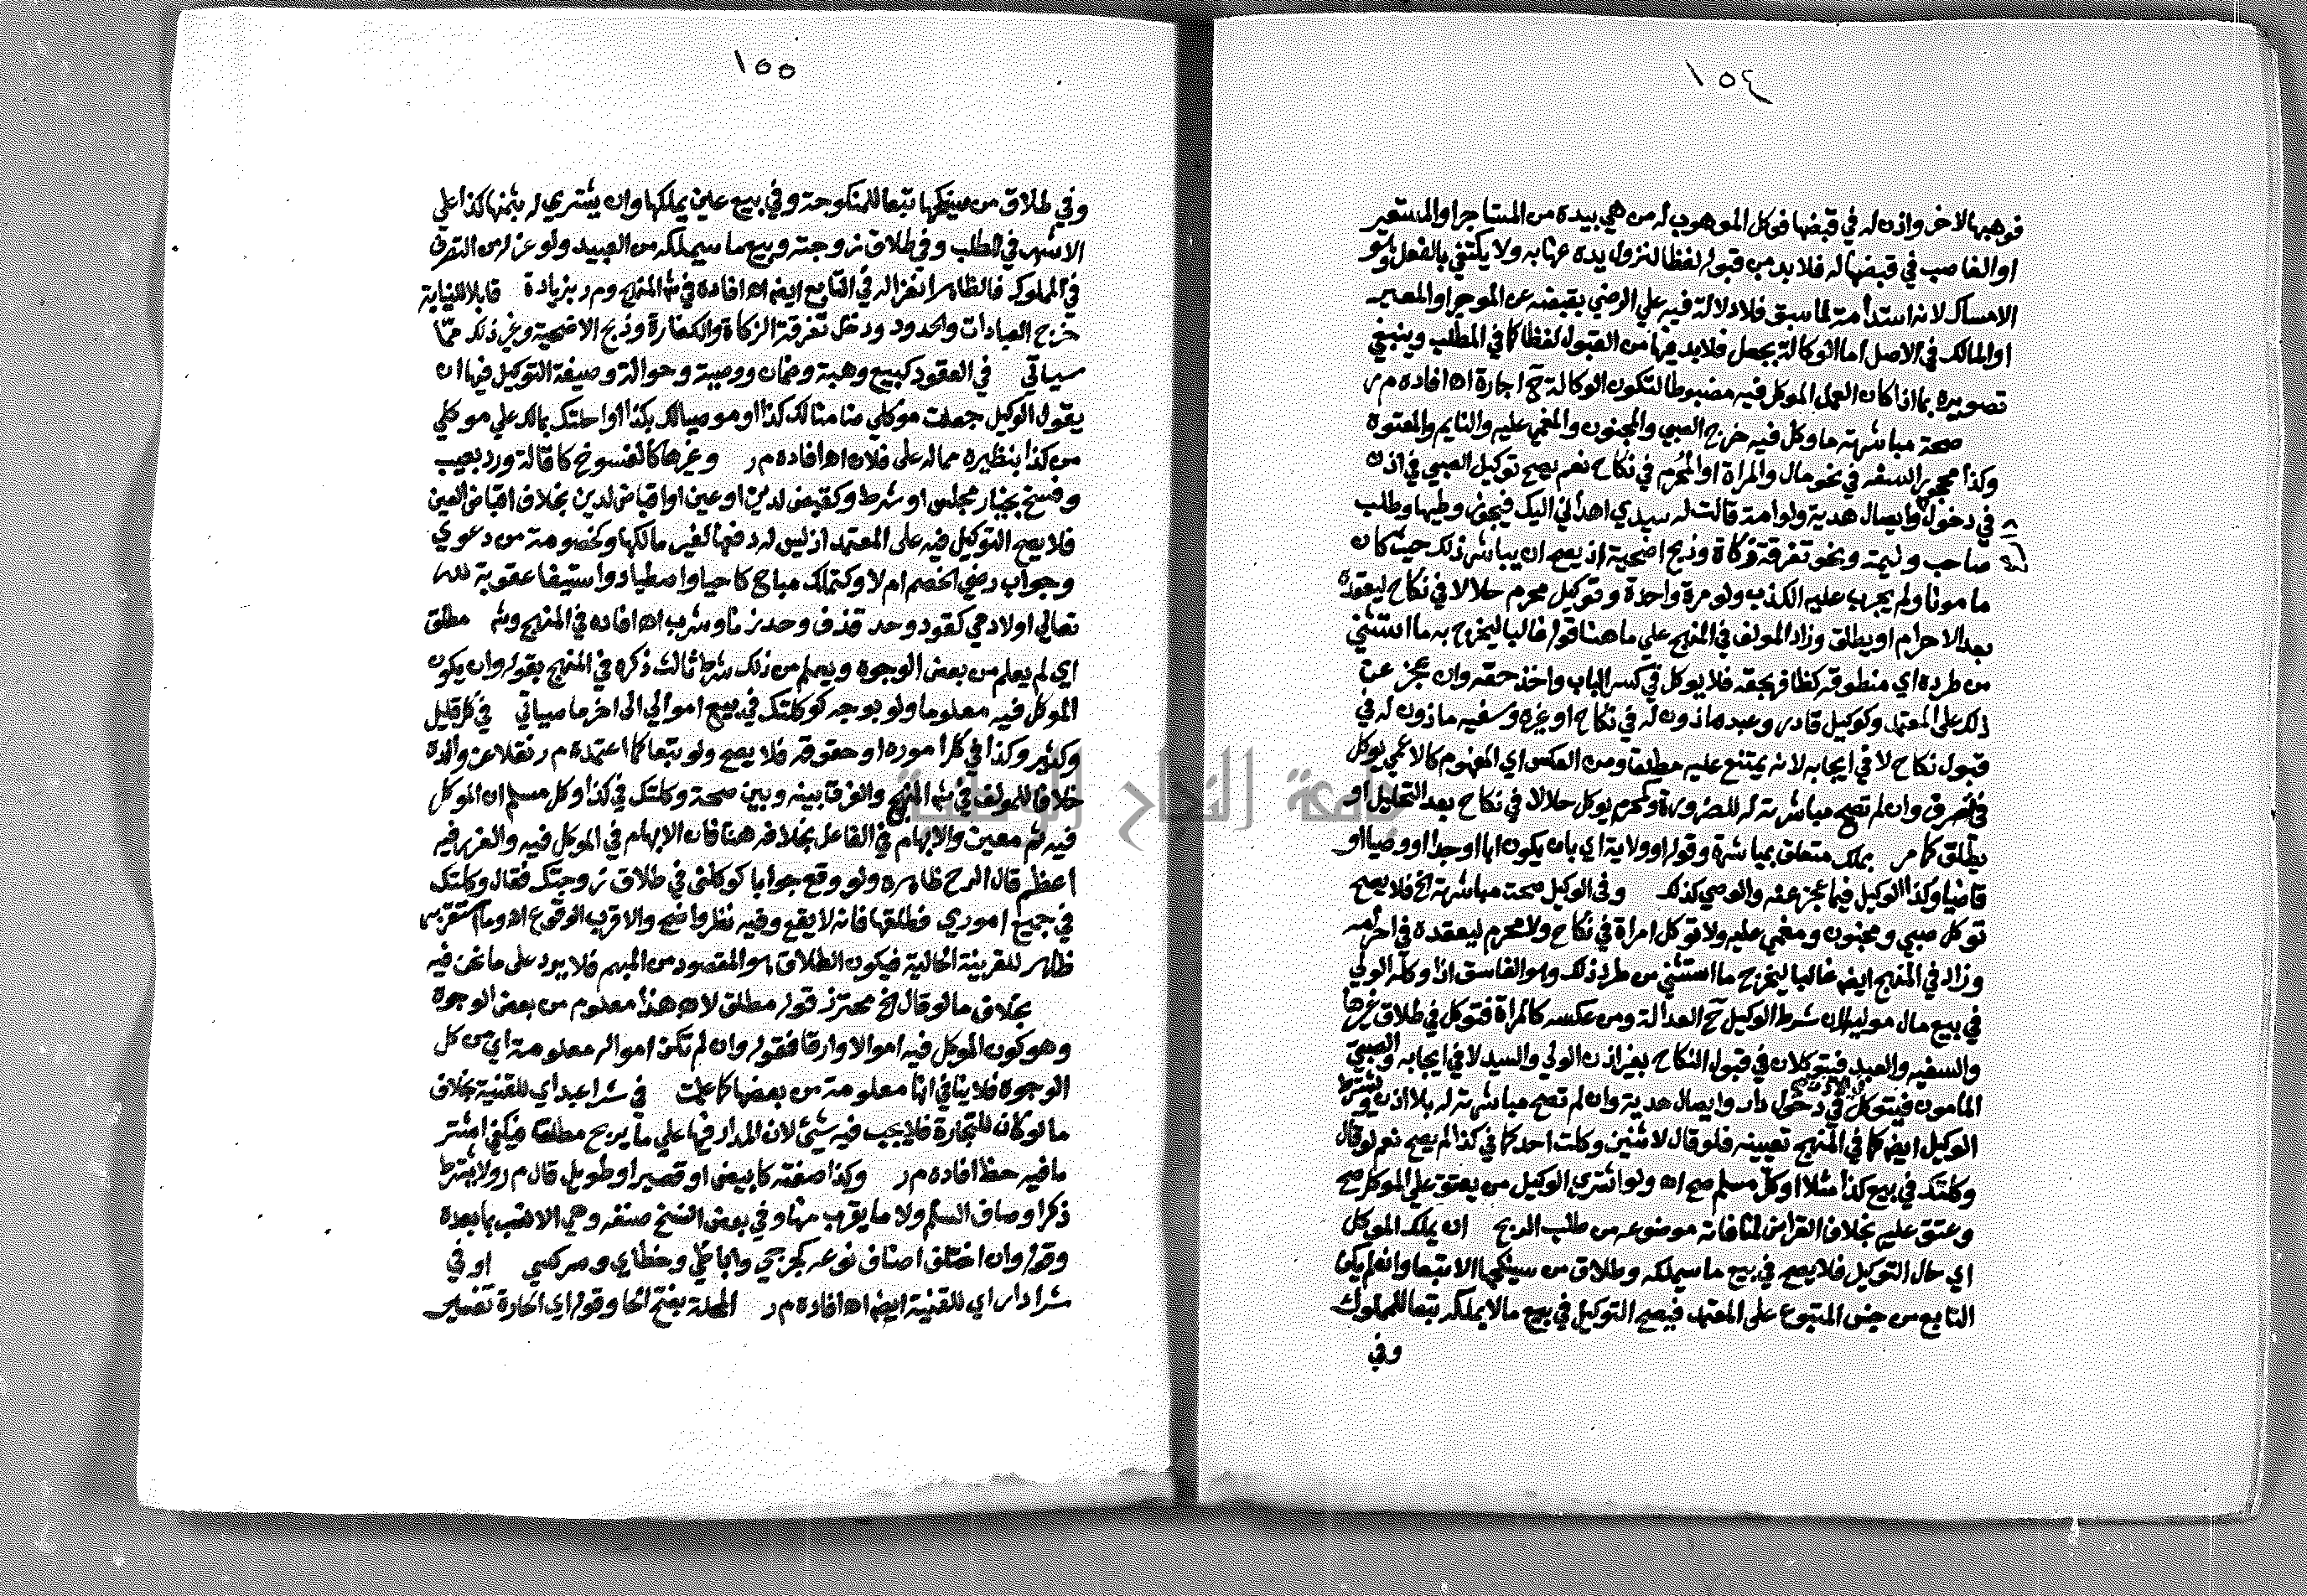 ١٥٤
فوهبها لاخر واذن له في قبضها فوكل الموهوب له من هي بيده من المستاجر او المستعير
او الغاصب في قبضها له فلا بد من قبوله لفظا لتزول يده عنها به ولا يكتفي بالفعل وهو
الامساك لانه استدامة لما سبق فلا دلالة فيه علي الرضي بقبضه عن الموجر او المعير
او المالك في الاصل اما الوكالة بجعل فلا بد فيها من القبول لفظا كما في المطلب وينبغي
تصويره بما اذا كان العمل الموكل فيه مضبوطا لتكون الوكالة ح اجارة اه افاده م ر
صحة مباشرته ما وكل فيه خرج الصبي والمجنون والمغمي عليه والنايم والمعتوه
وكذا محجور السفه في نحو مال والمراة او المحرم في نكاح نعم يصح توكيل الصبي في اذن
في دخول وايصال هدية ولو امة قالت له سيدي اهداني اليك فيجوز وطيها وطلب
صاحب وليمة ونحو تفرقة زكاة وذبح اضحية اذ يصح ان يباشر ذلك حيث كان
مامونا ولم يجرب عليه الكذب ولو مرة واحدة وتوكيل محرم حلالا في نكاح ليعقده
بعد الاحرام او يطلق وزاد المولف في المنهج علي ما هنا قوله غالبا ليخرج به ما استثني
من طرده اي منطوقه كظافر بحقه فلا يوكل في كسر الباب واخذ حقه وان عجز عن
ذلك علي المعتمد وكوكيل قادر وعبد ماذون له في نكاح او غيره وسفيه ماذون له في
قبول نكاح لا في ايجابه لانه يمتنع عليه مطلقا ومن العكس اي المفهوم كالاعمي يوكل
في تصرف وان لم تصح مباشرته له للضرورة وكمحرم يوكل حلالا في نكاح بعد التحليل او
يطلق كما مر بملك متعلق بمباشرة وقوله او ولاية اي بان يكون ابا او جدا او وصيا او
قاضيا وكذا الوكيل فيما عجز عنه والوصي كذلك وفي الوكيل صحت مباشرته الخ فلا يصح
توكل صبي ومجنون ومغمي عليه ولا توكل امراة في نكاح ولا محرم ليعقده في احرامه
وزاد في المنهج ايضا غالبا ليخرج ما استثني من طرد ذلك وهو الفاسق اذا وكله الولي
في بيع مال موليه لان شرط الوكيل ح العدالة ومن عكسه كالمراة فتوكل في طلاق غيرها
والسفيه والعبد فيتوكلان في قبول النكاح بغير اذن الولي والسيد لا في ايجابه والصبي
المامون فيتوكل في دخول دار وايصال هدية وان لم تصح مباشرته له بلا اذن ويشترط
الوكيل ايضا كما في المنهج تعيينه فلو قال لاثنين وكلت احدكما في كذا لم يصح نعم لو قال
وكلتك في بيع كذا مثلا او كل مسلم صح اه ولو اشتري الوكيل من يعتق علي الموكل صح
وعتق عليه بخلاف القراض لمنافاته موضوعه من طلب الربح ان يملك الموكل
اي حال التوكيل فلا يصح في بيع ما سيملكه وطلاق من سينكحها الا تبعا وان لم يكن
التابع من جنس المتبوع علي المعتمد فيصح التوكيل في بيع ما لا يملكه تبعا للمملوك
وفي
١٥٥
وفي طلاق من سينكحها تبعا للمنكوحة وفي بيع عين يملكها وان يشتري له بثمنها كذا علي
الاشهر في المطلب وفي طلاق زوجته وبيع ما سيملكه من العبيد ولو عزله من التصرف
في المملوك فالظاهر انعزاله في التابع ايضا اه افاده في شه المنهج وم ر بزيادة قابلا للنيابة
خرج العبادات والحدود ودخل تفرقة الزكاة والكفارة وذبح الاضحية وغير ذلك مما
سياتي في العقود كبيع وهبة وضمان ووصية وحوالة وصيغة التوكيل فيها ان
يقول الوكيل جعلت موكلي ضامنا لك كذا او موصيا لك بكذا او احلتك بمالك علي موكلي
من كذا بنظيره مما له علي فلان اه افاده م ر وغيرها كالفسوخ كاقالة ورد بعيب
وفسخ بخيار مجلس او شرط وكقبض لدين او عين او اقباض لدين بخلاف اقباض العين
فلا يصح التوكيل فيه علي المعتمد اذ ليس له دفعها لغير مالكها وكخصومة من دعوي
وجواب رضي الخصم ام لا وكتملك مباح كاحيا واصطياد واستيفا عقوبة لله
تعالي او لادمي كقود وحد قذف وحد زنا وشرب اه افاده في المنهج وشه مطلق
اي لم يعلم من بعض الوجوه ويعلم من ذلك شرط ثالث ذكره في المنهج بقوله وان يكون
الموكل فيه معلوما ولو بوجه كوكلتك في بيع اموالي الي اخر ما سياتي في كل قليل
وكثير وكذا في كل اموره او حقوقه فلا يصح ولو تبعا كما اعتمده م ر نقلا عن والده
خلافا للمولف في شه المنهج والفرق بينه وبين صحة وكلتك في كذا وكل مسلم ان الموكل
فيه ثم معين والابهام في الفاعل بخلافه هنا فان الابهام في الموكل فيه والغرر فيه
اعظم قال الرح ظاهره ولو وقع جوابا كوكلني في طلاق زوجتك فقال وكلتك
في جميع اموري فطلقها فانه لا يقع وفيه نظر واضح والاقرب الوقوع اه وما استقربه
ظاهر للقرينة الحالية فيكون الطلاق هو المقصود من المبهم فلا يرد علي ما نحن فيه
بخلاف ما لو قال الخ محترز قوله مطلق لان هذا معلوم من بعض الوجوه
وهو كون الموكل فيه اموالا وارقا فقوله وان لم تكن امواله معلومة اي من كل
الوجوه فلا ينافي انها معلومة من بعضها كما علمت في شرا عبد اي للقنية بخلاف
ما لو كان للتجارة فلا يجب فيه شيئ لان المدار فيها علي ما يربح مطلقا فيكفي اشتر
ما فيه حظ افاده م ر وكذا صفته كابيض او قصير او طويل قال م ر ولا يشترط
ذكر اوصاف السلم ولا ما يقرب منها وفي بعض النسخ صنفه وهي الانسب بما بعده
وقوله وان اختلف اصناف نوعه كجرجي واباظي وخطاي وسركسي او في
شرا دار اي للقنية ايضا اه افاده م ر المحلة بفتح الحا وقوله اي الحارة تفسير